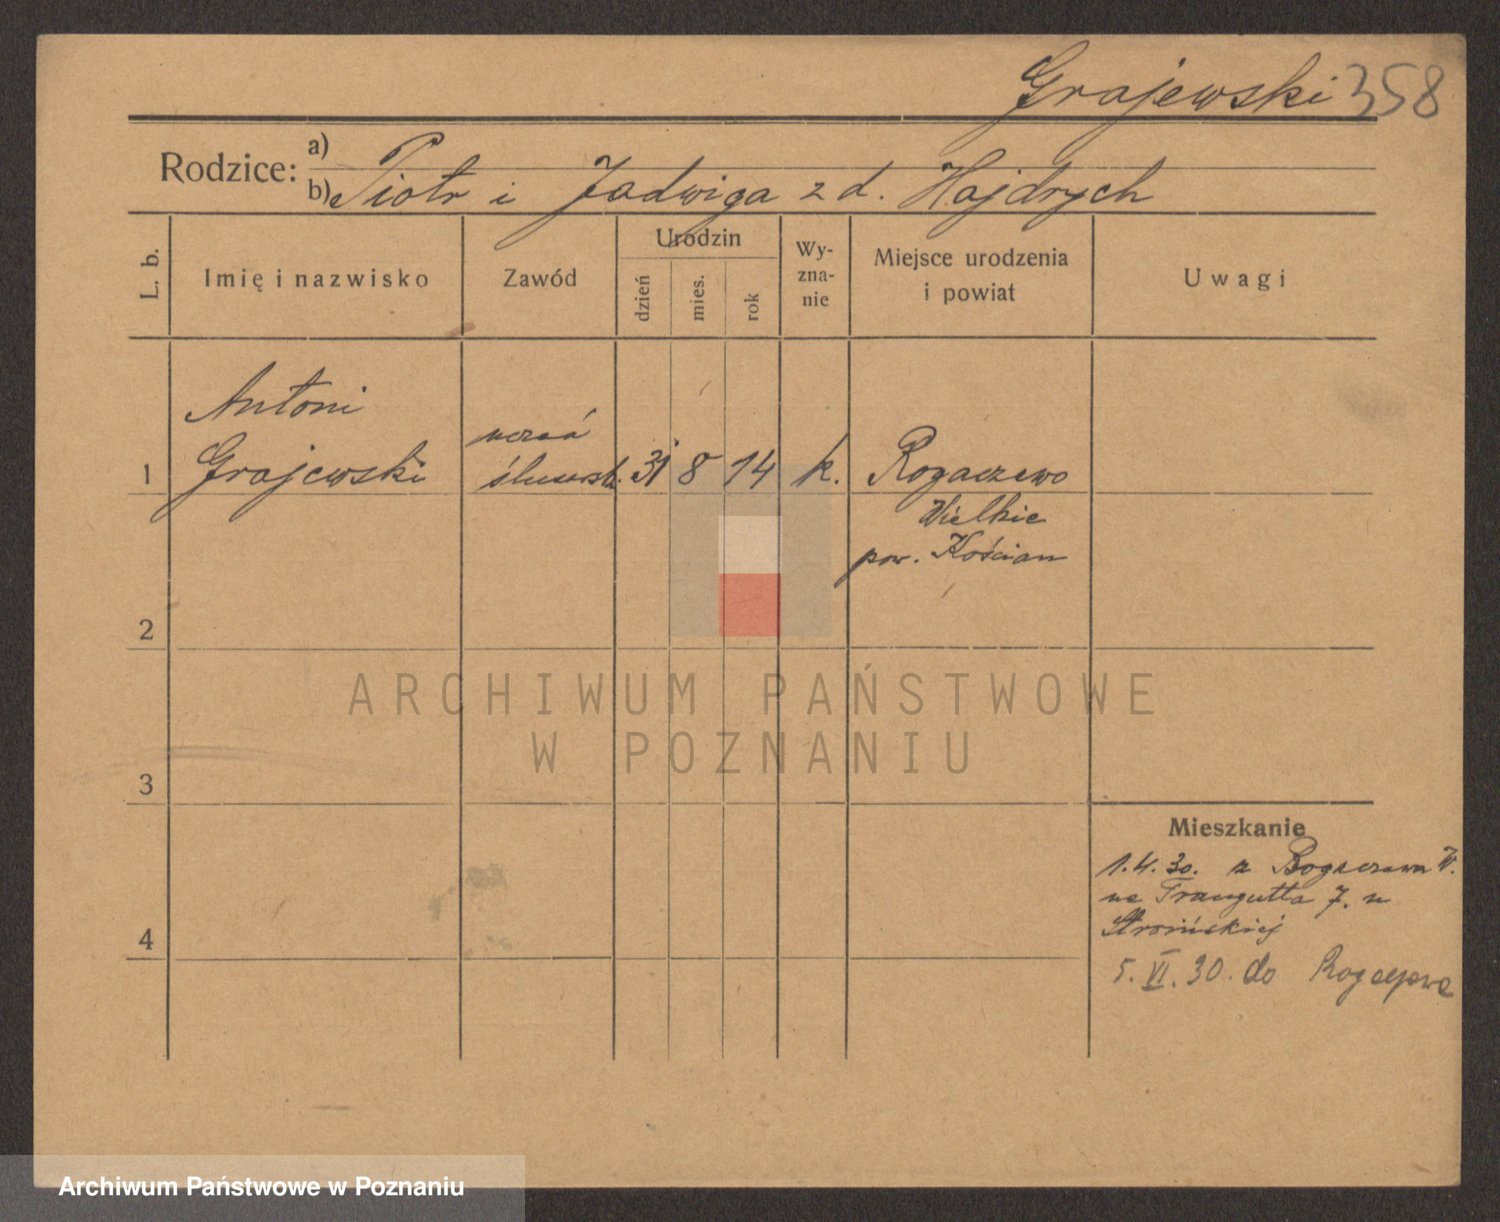 Grajewski 358
Rodzice:
a)
b) Piotr i Jadwiga z d. Hajdrych
L. b.
Imię i nazwisko
Zawód
Urodzin
dzień
mies.
rok
Wy-
zna-
nie
Miejsce urodzenia
i powiat
Uwagi
Antoni
uczeń
1 Grajewski ślusarsk. 31 8 14 k. Rogaczewo
Wielkie
pow. Kościan
2
3
4
Mieszkanie
1.4.30. z Rogaczewa W.
na Traugutta 7. u
5.VI.30. do
ARCHIWUM PAŃSTWOWE
W POZNANIU
Archiwum Państwowe w Poznaniu